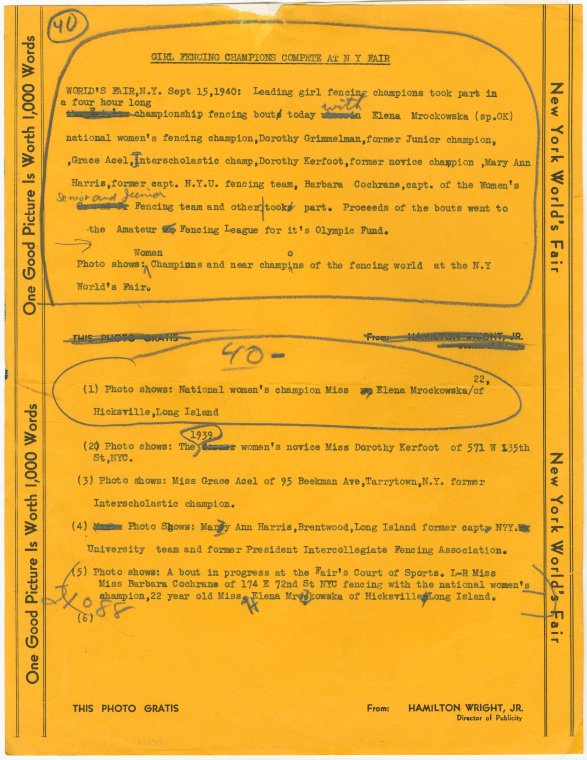 40
GIRL FENCING CHAMPIONS COMPETE AT N Y FAIR
WORLD'S FAIR,N.Y. Sept 15,1940: Leading girl fencing champions took part in
a four hour long
championship fencing bout today with Elena Mrockowska (sp.OK)
national women's fencing champion,Dorothy Grimmelman,former Junior champion,
,Grace Acel,Interscholastic champ,Dorothy Kerfoot,former novice champion ,Mary Ann
Harris,former capt. N.Y.U. fencing team, Barbara Cochrane,capt. of the Women's
Senior and Junior
Fencing team and other took part. Proceeds of the bouts went to
the Amateur Fencing League for it's Olympic Fund.
Women
Photo shows: Champions and near champions of the fencing world at the N.Y
World's Fair.
THIS PHOTO GRATIS From: HAMILTON WRIGHT, JR.
Director of Publicity
40-
22,
(1) Photo shows: National women's champion Miss Elena Mrockowska/of
Hicksville,Long Island
1939
(2) Photo shows: The women's novice Miss Dorothy Kerfoot of 571 W 135th
St,NYC.
(3) Photo shows: Miss Grace Acel of 95 Beekman Ave,Tarrytown,N.Y. former
Interscholastic champion.
(4) Photo Shows: Mary Ann Harris,Brentwood,Long Island former capt, N.Y.
University team and former President Intercollegiate Fencing Association.
(5) Photo shows: A bout in progress at the Fair's Court of Sports. L-R Miss
Miss Barbara Cochrane of 174 E 72nd St NYC fencing with the national women's
champion,22 year old Miss Elena Mrockowska of Hicksville,Long Island.
(6)
THIS PHOTO GRATIS From: HAMILTON WRIGHT, JR.
Director of Publicity
One Good Picture Is Worth 1,000 Words
One Good Picture Is Worth 1,000 Words
New York World's Fair
New York World's Fair